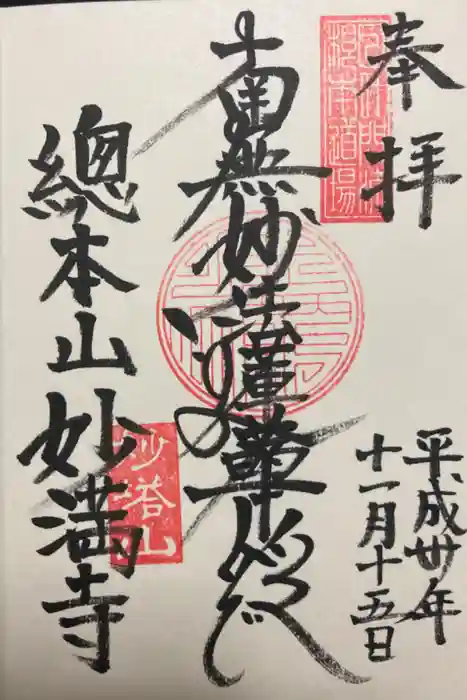 奉拝
平成卅年
十一月十五日
南無妙法蓮華経
總本山妙満寺
妙塔山